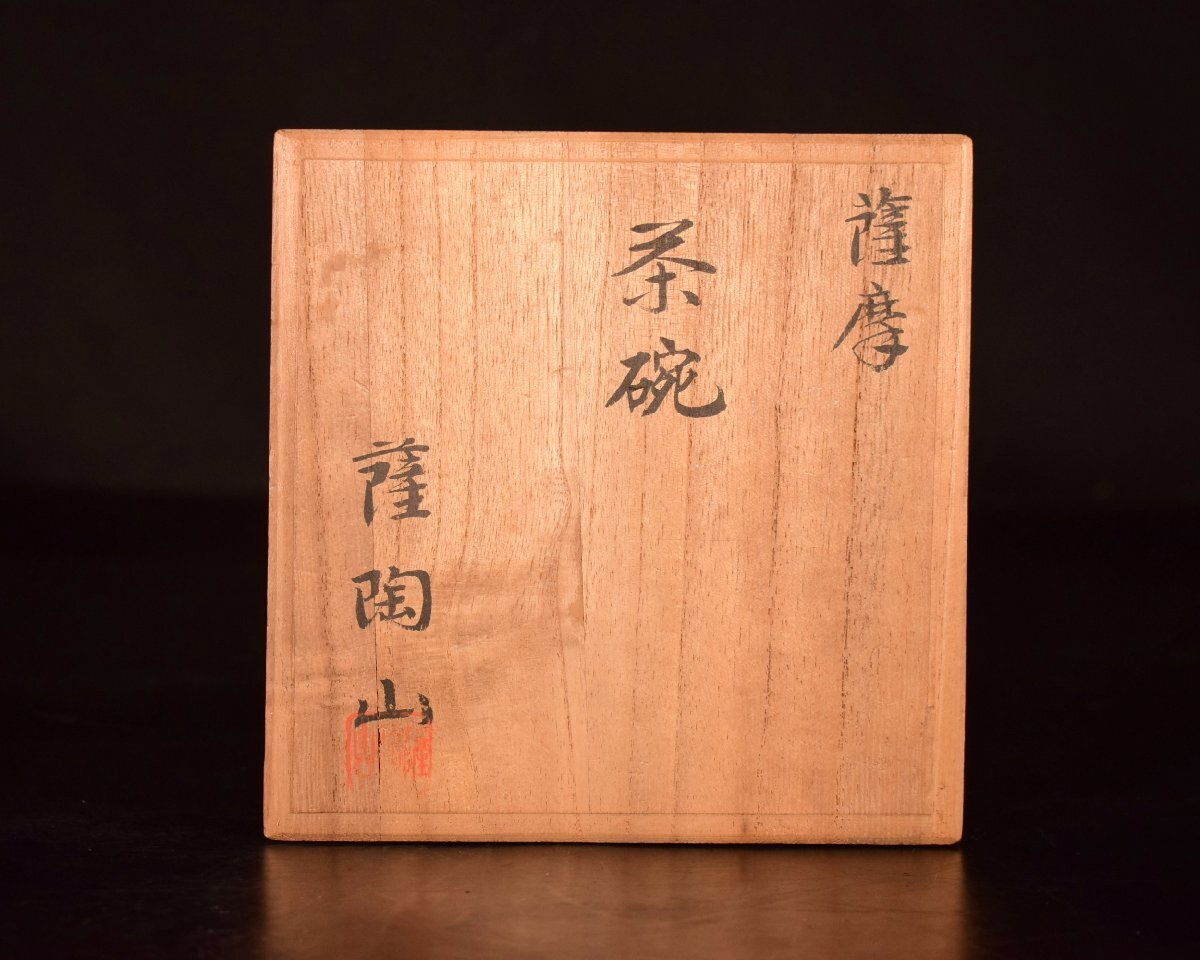 薩摩
茶碗
薩陶山